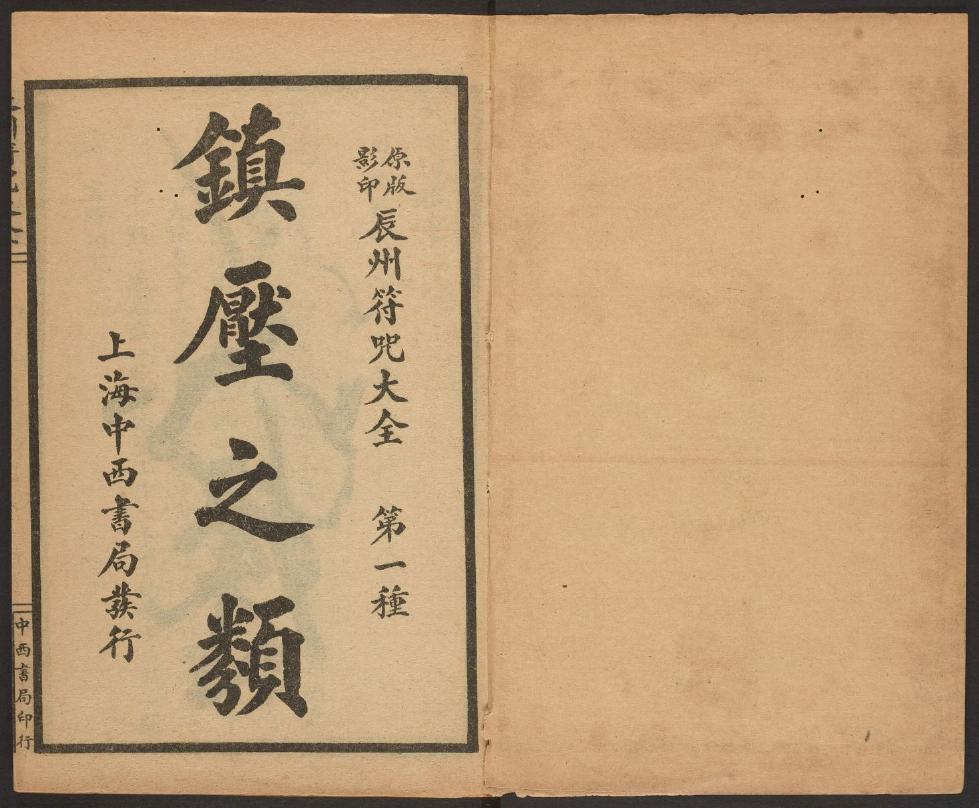 原版
影印
辰州符咒大全 第一種
鎮壓之類
上海中西書局發行
中西書局印行